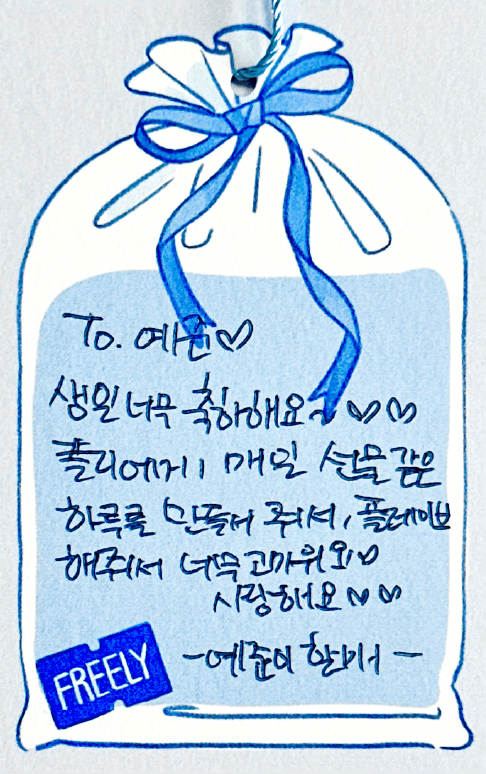 To. 예준♡
생일 너무 축하해요~ ♡♡
플리에게 매일 선물 같은
하루를 만들어 줘서, 플레이브
해줘서 너무 고마워요♡
사랑해요♡♡
FREELY
-예준이